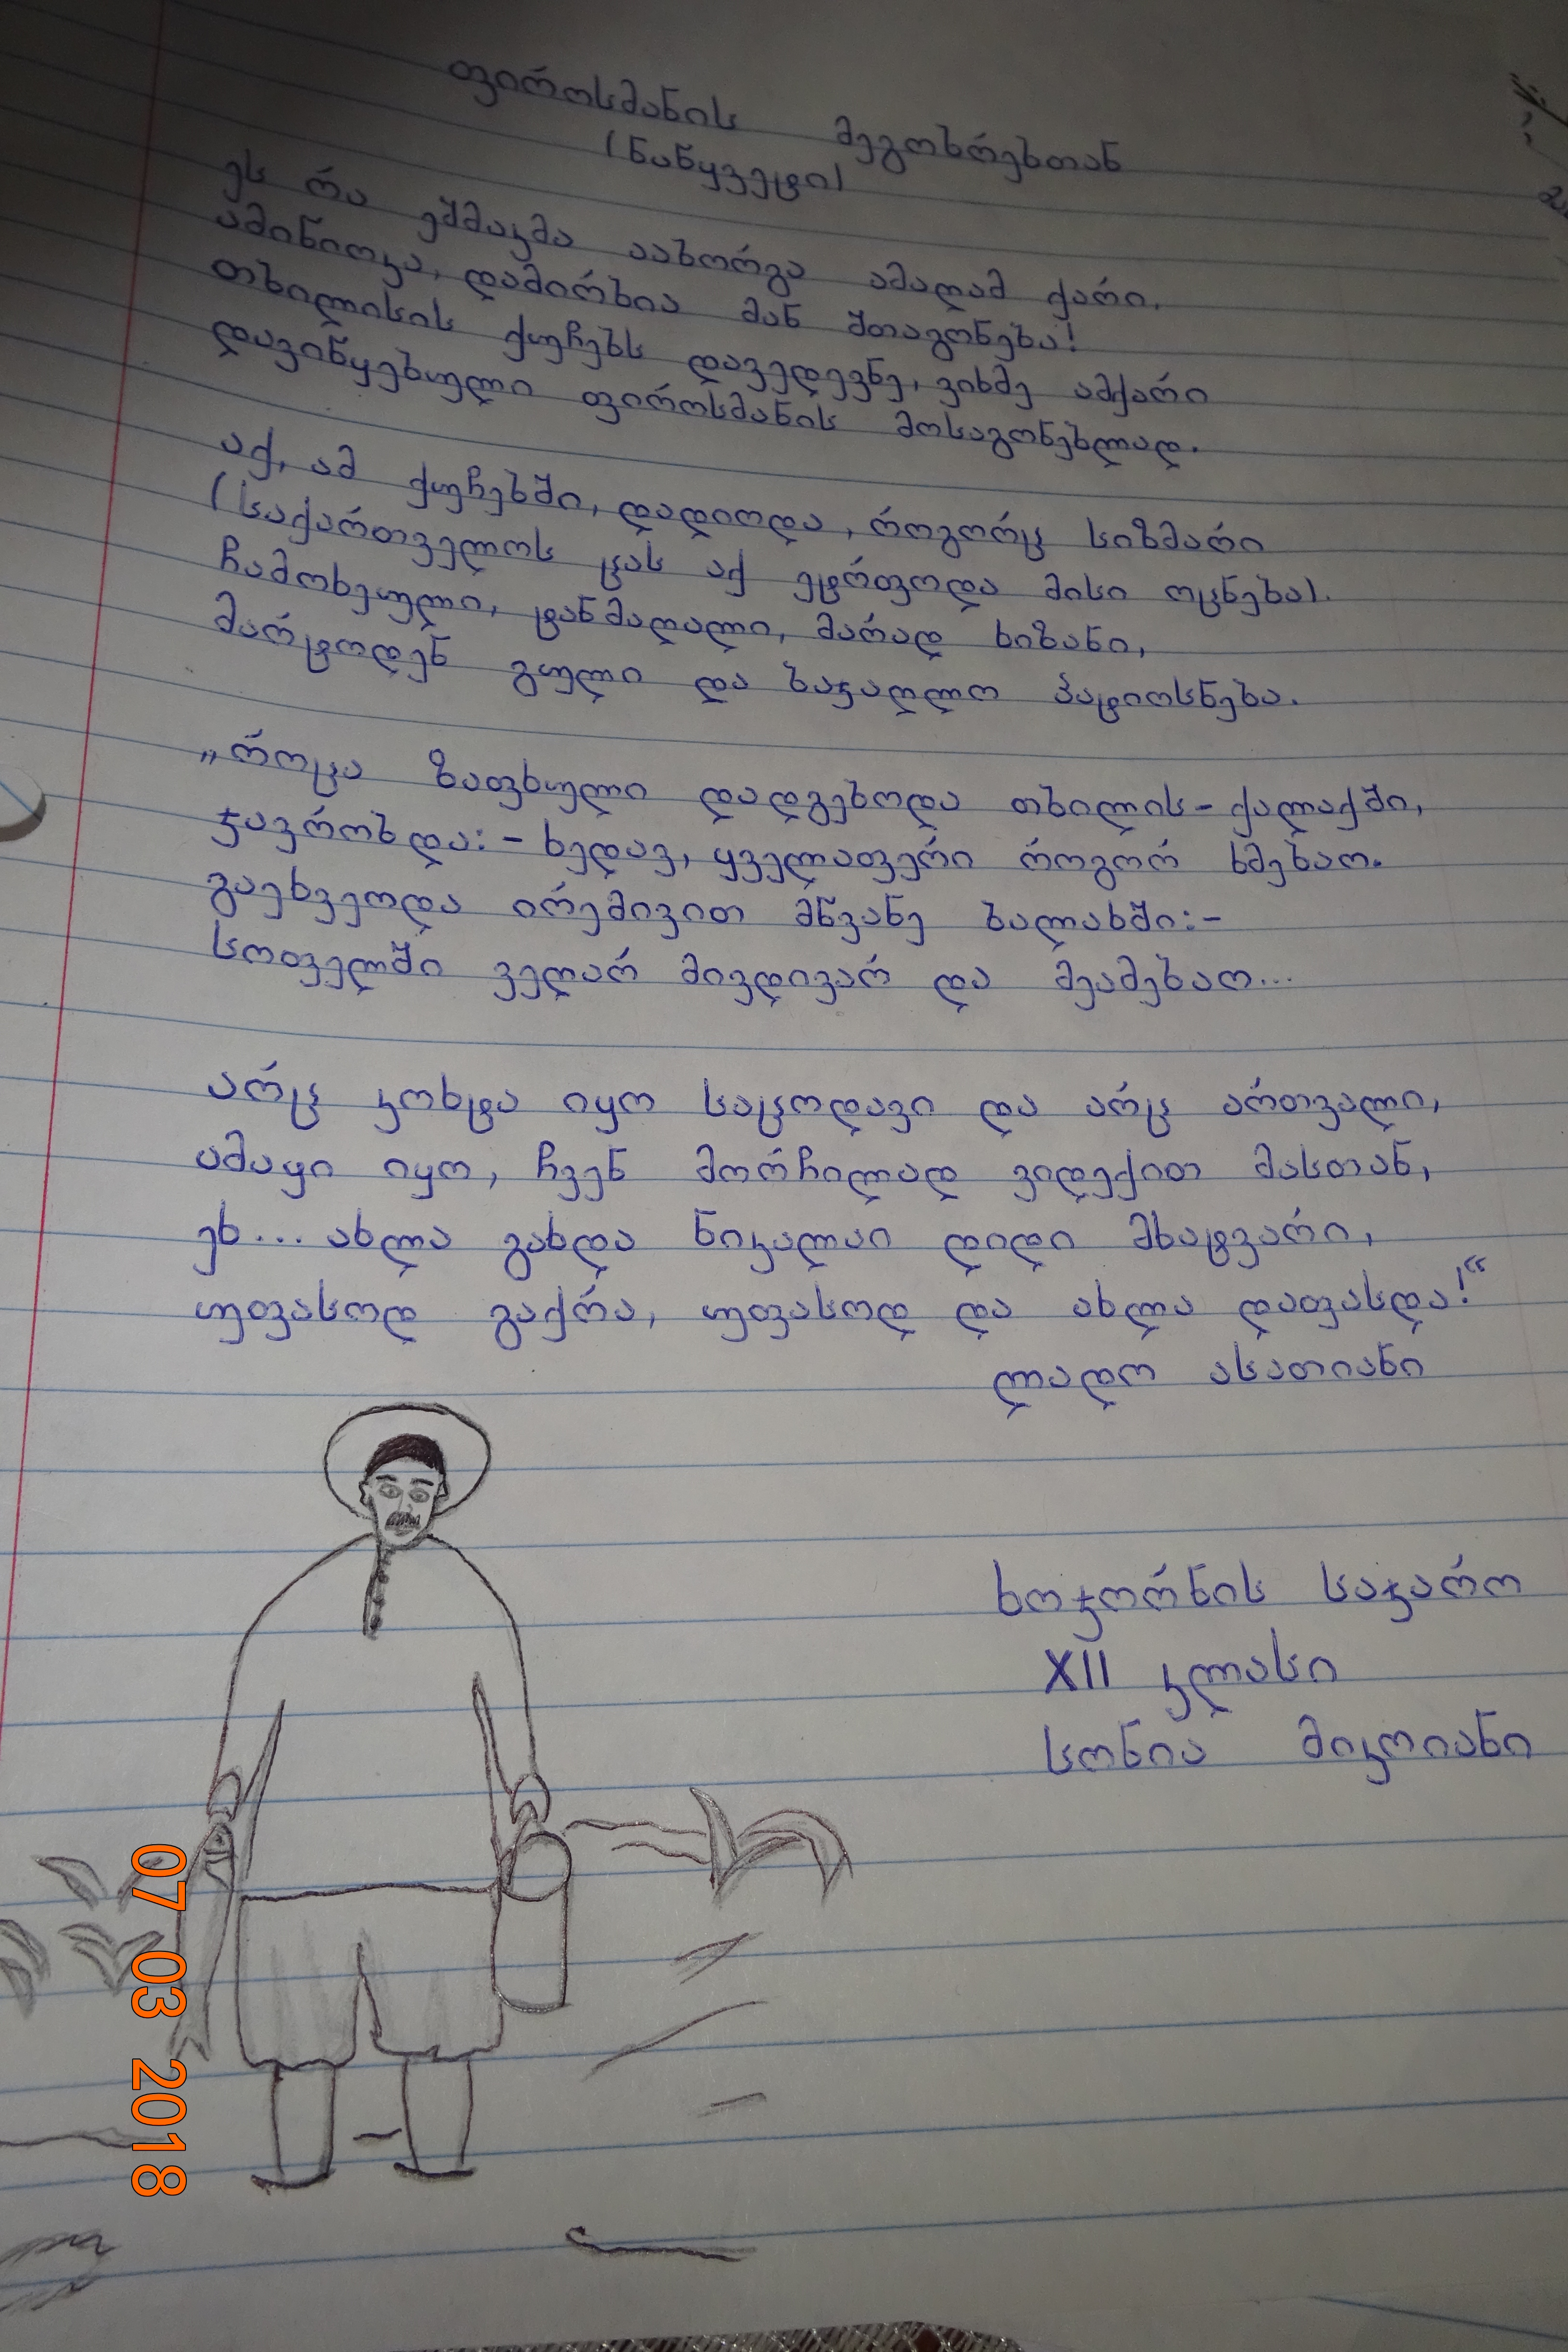 ფიროსმანის მეგობრებთან
(ნაწყვეტი)
ეს რა ეშმაკმა აახორგა ამაღამ ქარი,
ამიწიოკა, დამირბია მან შთაგონება!
თბილისის ქუჩებს დავედევნე, ვიხმე ამქარი
დავიწყებული ფიროსმანის მოსაგონებლად.
აქ, ამ ქუჩებში, დადიოდა, როგორც სიზმარი
(საქართველოს ცას აქ ეტრფოდა მისი ოცნება).
ჩამოხეული, ტანმაღალი, მარად ხიზანი,
მარტოდენ გული და ბაჯაღლო პატიოსნება.
„როცა ზაფხული დადგებოდა თბილის-ქალაქში,
ჯავრობდა: - ხედავ, ყველაფერი როგორ ხმებაო.
გაეხვეოდა ირემივით მწვანე ბალახში: -
სოფელში ველარ მივდივარ და მეამებაო...
არც კოხტა იყო საცოდავი და არც ართვალი,
ამაყი იყო, ჩვენ მორჩილად ვიდექით მასთან,
ეხ... ახლა გახდა ნიკალაი დიდი მხატვარი,
უფასოდ გაქრა, უფასოდ და ახლა დაფასდა!“
ლადო ასათიანი
ხოჯორნის საჯარო
XII კლასი
სონია მიკოიანი
07 03 2018